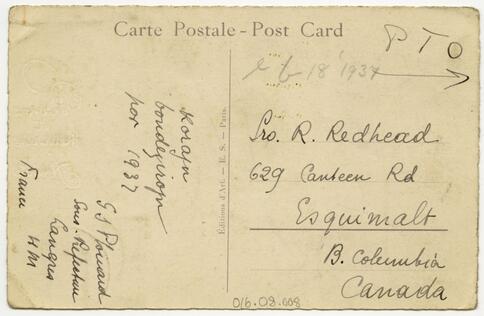 Carte Postale - Post Card
PTO
18 1937
Korajn
bondezirojn
por 1937
G S
Sous-Préfecture
Langres
H M
France
Éditions d'Art. — E. S. — Paris.
Sro. R. Redhead
629 Canteen Rd
Esquimalt
B. Columbia
Canada
016.08.008